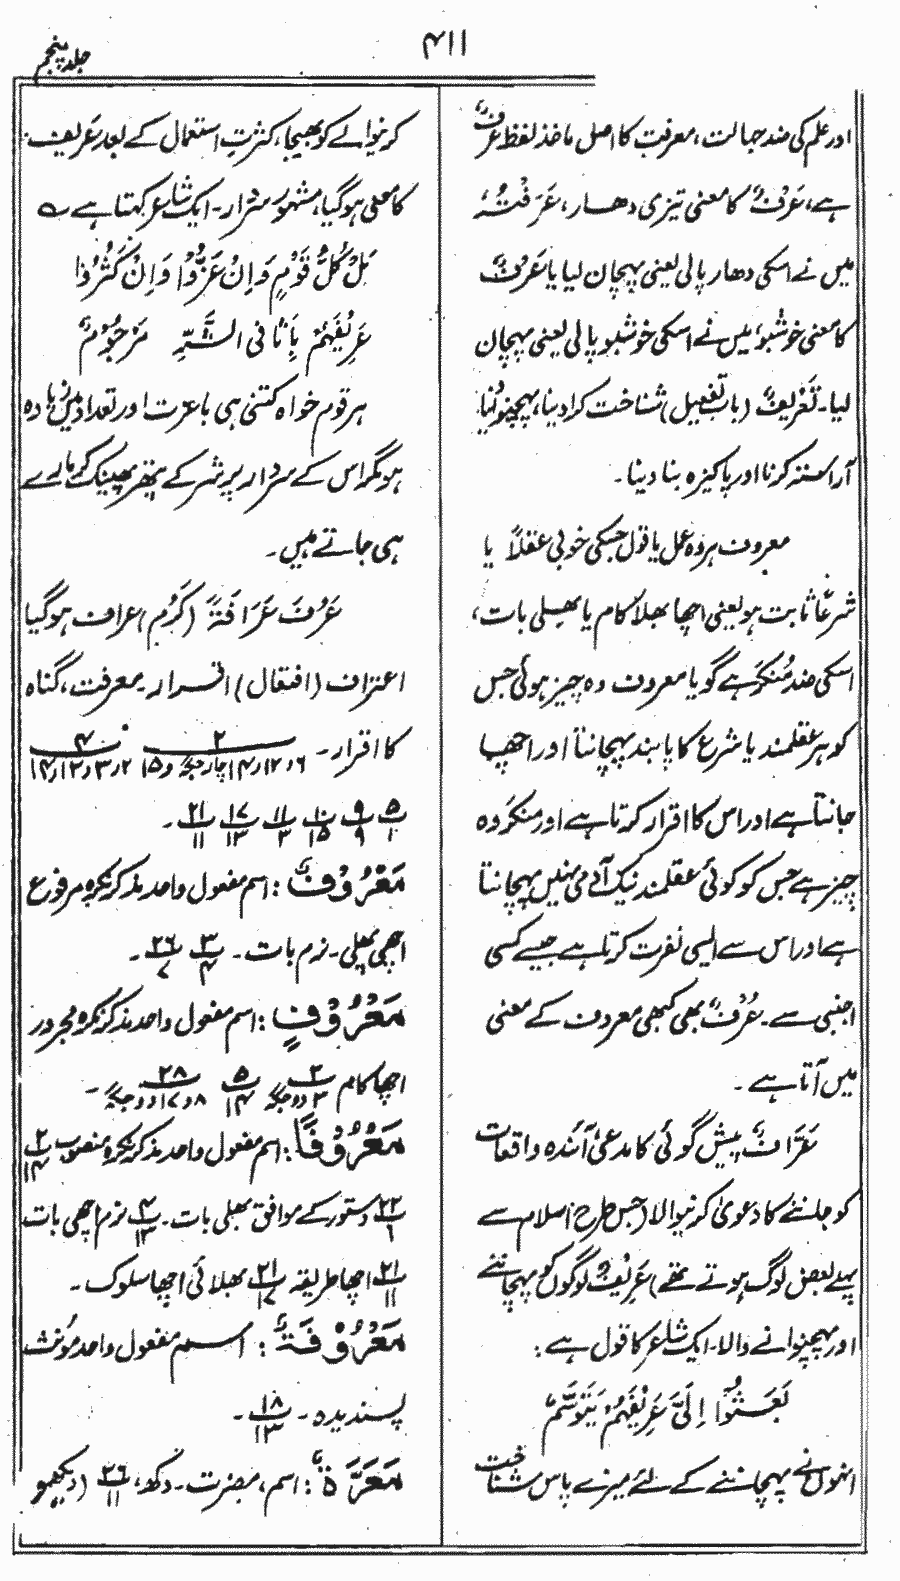 ۴۱۱
جلد پنجم
اور علم کی ضد جہالت، معرفت کا اصل ماخذ لفظ عَرْفٌ
ہے، عَرْفٌ کا معنی تیزی دھار، عَرَفْتُہٗ
میں نے اسکی دھار پالی یعنی پہچان لیا یا عَرْفٌ
کا معنی خوشبو، میں نے اسکی خوشبو پالی یعنی پہچان
لیا۔ تَعْرِیْفٌ (باب تفعیل) شناخت کرا دینا، پہچنوانا
آراستہ کرنا اور پاکیزہ بنا دینا۔
معروف ہر وہ عمل یا قول جسکی خوبی عقلاً یا
شرعًا ثابت ہو یعنی اچھا بھلا کام یا بھلی بات،
اسکی ضد مُنْکَرٌ ہے گویا معروف وہ چیز ہوئی جس
کو ہر عقلمند یا شرع کا پابند پہچانتا اور اچھا
جانتا ہے اور اس کا اقرار کرتا ہے اور منکَر وہ
چیز ہے جس کو کوئی عقلمند نیک آدمی نہیں پہچانتا
ہے اور اس سے ایسی نفرت کرتا ہے جیسے کسی
اجنبی سے۔ عُرْفٌ بھی کبھی معروف کے معنی
میں آتا ہے۔
عَرَّافٌ، پیش گوئی کا مدعی آئندہ واقعات
کو جاننے کا دعویٰ کرنیوالا (جس طرح اسلام سے
پہلے بعض لوگ ہوتے تھے) عَرِیْفٌ لوگوں کو پہچاننے
اور پہچنوانے والا۔ ایک شاعر کا قول ہے:
بَعَثُوْا اِلَیَّ عَرِیْفَھُمْ یَتَوَسَّمُ
انہوں نے پہچاننے کے لئے میرے پاس شناخت
کرنیوالے کو بھیجا، کثرتِ استعمال کے بعد عَرِیف
کا معنی ہو گیا، مشہور سردار۔ ایک شاعر کہتا ہے ؎
بَلْ کُلُّ قَوْمٍ وَاِنْ عَزُّوْا وَاِنْ کَثُرُوْا
عَرِیْفُھُمْ بِاَثَافِی الشَّرِّ مَرْجُوْمٌ
ہر قوم خواہ کتنی ہی باعزت اور تعداد میں زیادہ
ہو مگر اس کے سردار پر شر کے پتھر پھینک کر مارے
ہی جاتے ہیں۔
عَرُفَ عَرَافَۃً (کَرُمَ) عراف ہو گیا
اعتراف (افتعال) اقرار۔ معرفت، گناہ
کا اقرار۔ ۲ ۶ و ۱۲ و ۱۴ چار جگہ و ۱۵ ۴ ۲ و ۳ و ۱۲ و ۱۴
۵ ۱ ۹ ۹ ۱۰ ۱۵ ۱۱ ۳ ۱۷ ۱۳ ۲۱ ۱۱ ۔
مَعْرُوْفٌ: اسم مفعول واحد مذکر نکرہ مرفوع
اچھی بھلی۔ نرم بات۔ ۳ ۴ ۲۶ ۷ ۔
مَعْرُوْفٍ: اسم مفعول واحد مذکر نکرہ مجرور
اچھا کام ۲ ۳ دو جگہ ۵ ۱۴ ۲۸ ۸ و ۱۷ دو جگہ ۔
مَعْرُوْفًا: اسم مفعول واحد مذکر نکرہ منصوب ۲ ۱۴
۲۲ ۱ دستور کے موافق بھلی بات۔ ۴ ۱۲ نرم اچھی بات
۲۱ ۱۱ اچھا طریقہ ۲۱ ۱۷ بھلائی اچھا سلوک۔
مَعْرُوْفَۃٌ: اسم مفعول واحد مؤنث
پسندیدہ۔ ۱۸ ۱۳ ۔
مَعَرَّۃٌ: اسم، مضرت۔ دکھ، ۲۶ ۱۱ (دیکھو